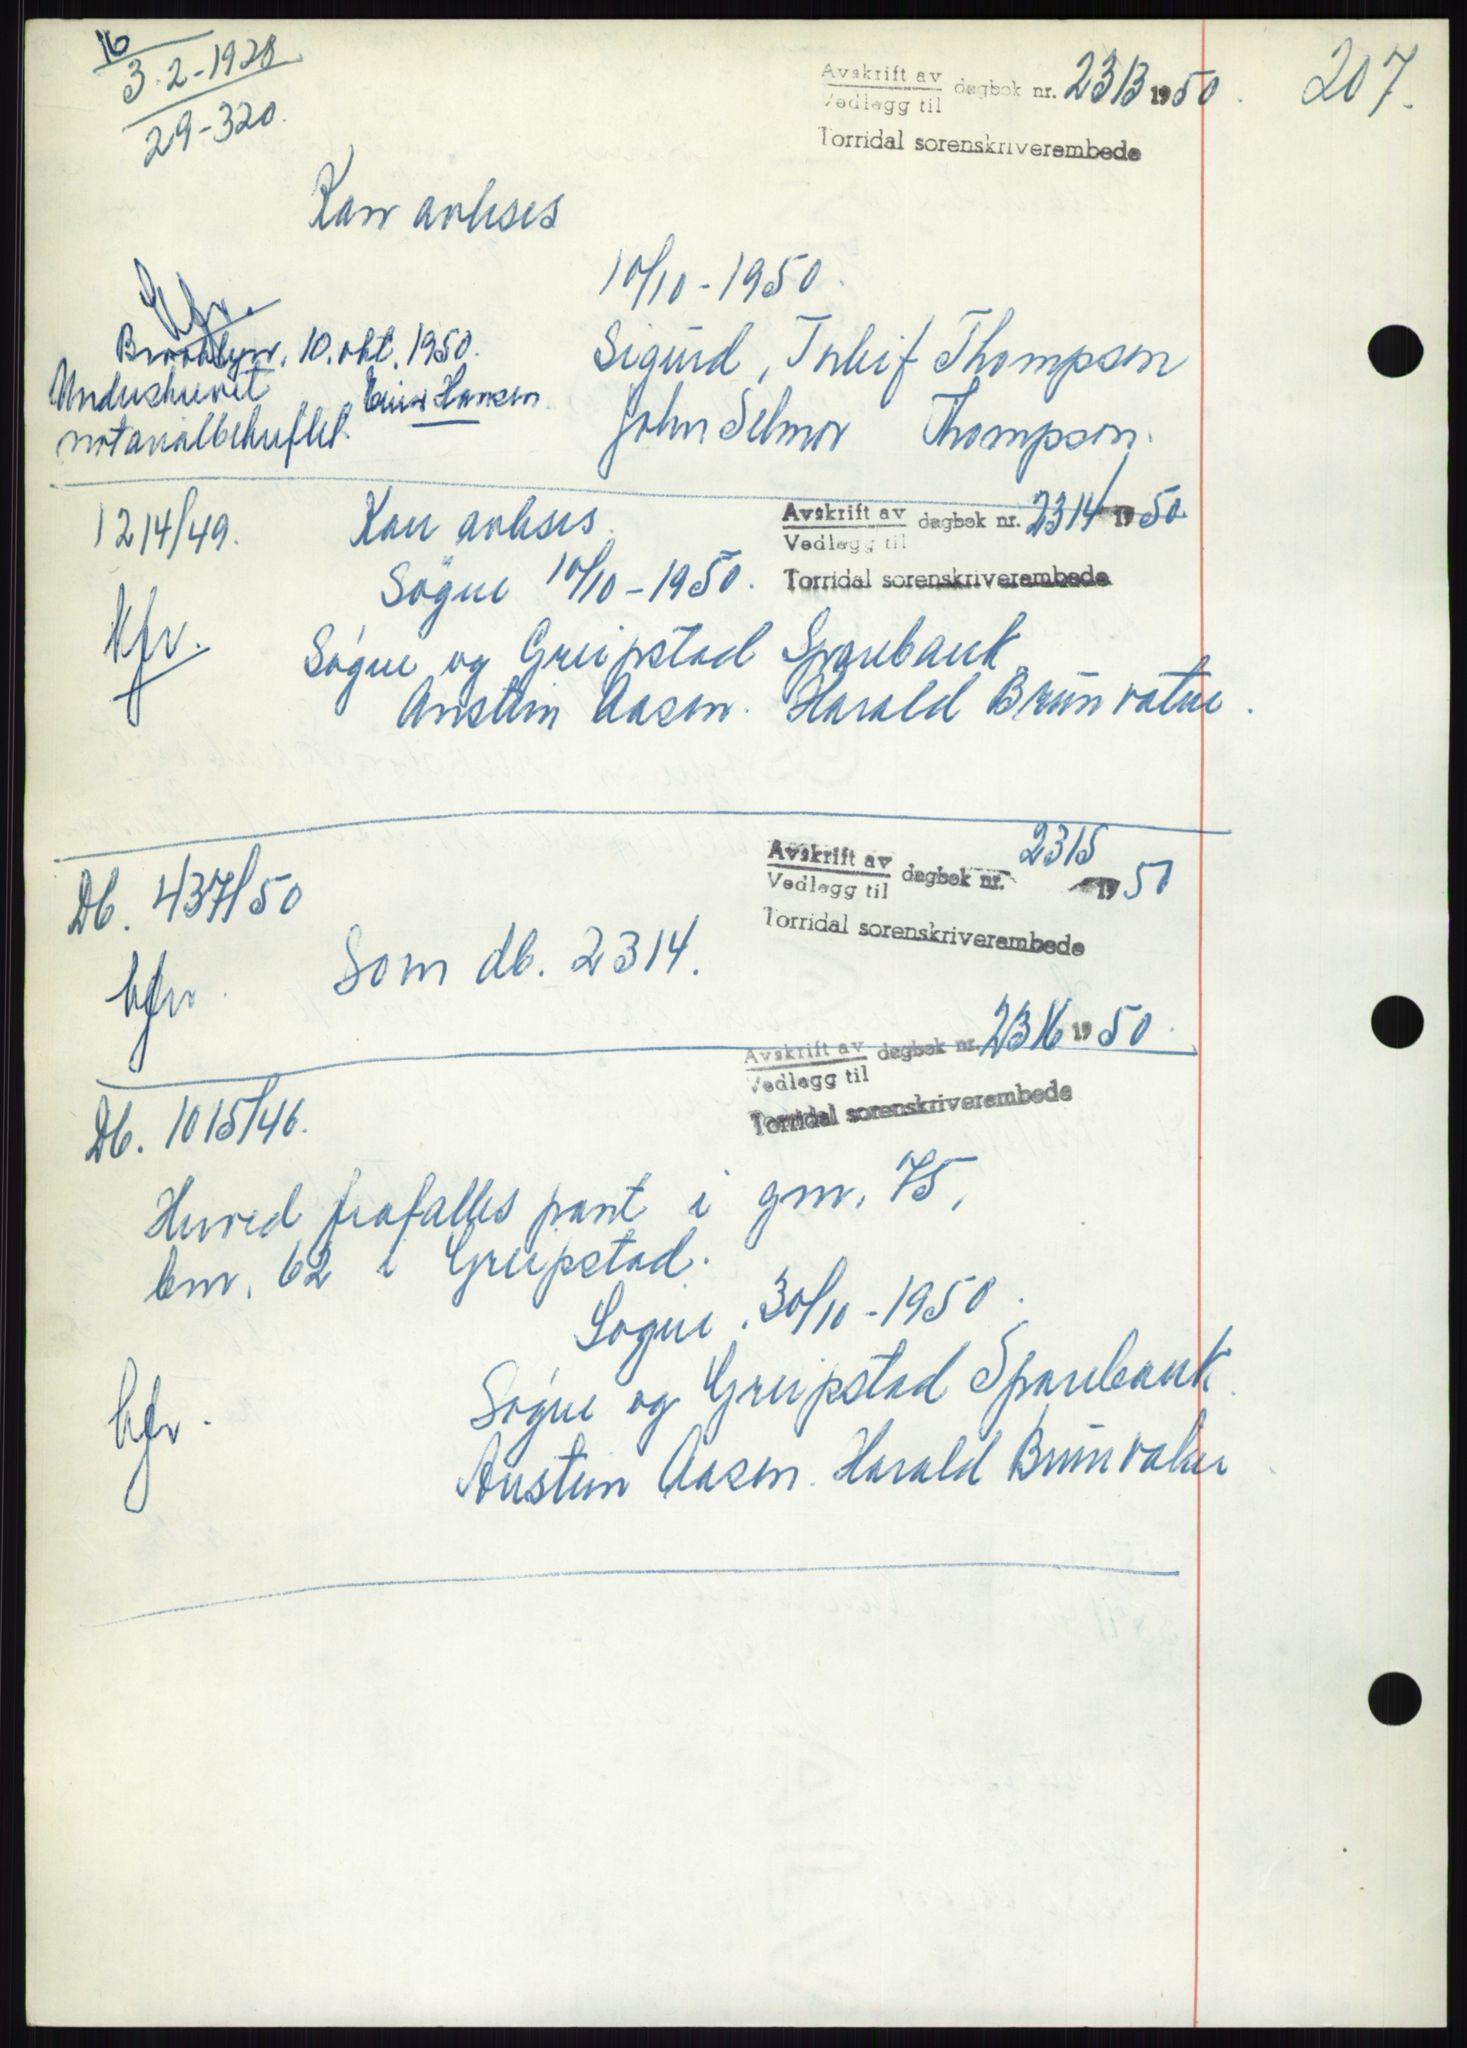 207.
16
3.2-1928
29-320.
Avskrift av
Vedlegg til
dagbok nr. 2313 1950.
Torridal sorenskriverembede
Kan avleses
10/10-1950.
Kfr.
Brooklyn, 10. okt. 1950.
Underskrevet
notarialbekreftet.
Hansen
Sigurd, Torleif Thompson
John Selmer Thompson.
1214/49.
Kan avleses
Avskrift av
Vedlegg til
dagbok nr. 2314 1950
Torridal sorenskriverembede
Søgne 10/10-1950.
Kfr.
Søgne og Greipstad Sparebank
Anstein Aasen. Harald Brunvatne.
Avskrift av
Vedlegg til
dagbok nr. 2315 1950
Torridal sorenskriverembede
Db. 437/50
Kfr.
Som db. 2314.
Avskrift av
Vedlegg til
dagbok nr. 2316 1950.
Torridal sorenskriverembede
Db. 1015/46.
Herved frafalles pant i gnr. 75,
bnr. 62 i Greipstad.
Søgne. 30/10-1950.
Kfr.
Søgne og Greipstad Sparebank
Anstein Aasen. Harald Brunvatne